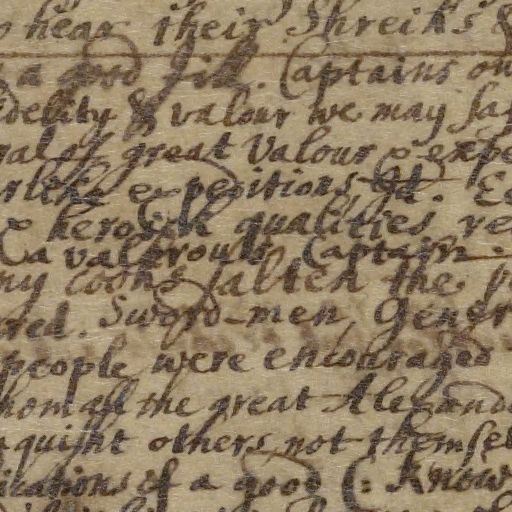 hear their Shreiks &
a good Captains
fidelity & valour we may say
great Valour & expe
expeditions,
& heroick qualities re
a valerous Captain.
my loons falten the
red. Sword-men, Gener
people were encouraged
whom all the great Alexand
quisht others, not themsel
ications of a good (: Know